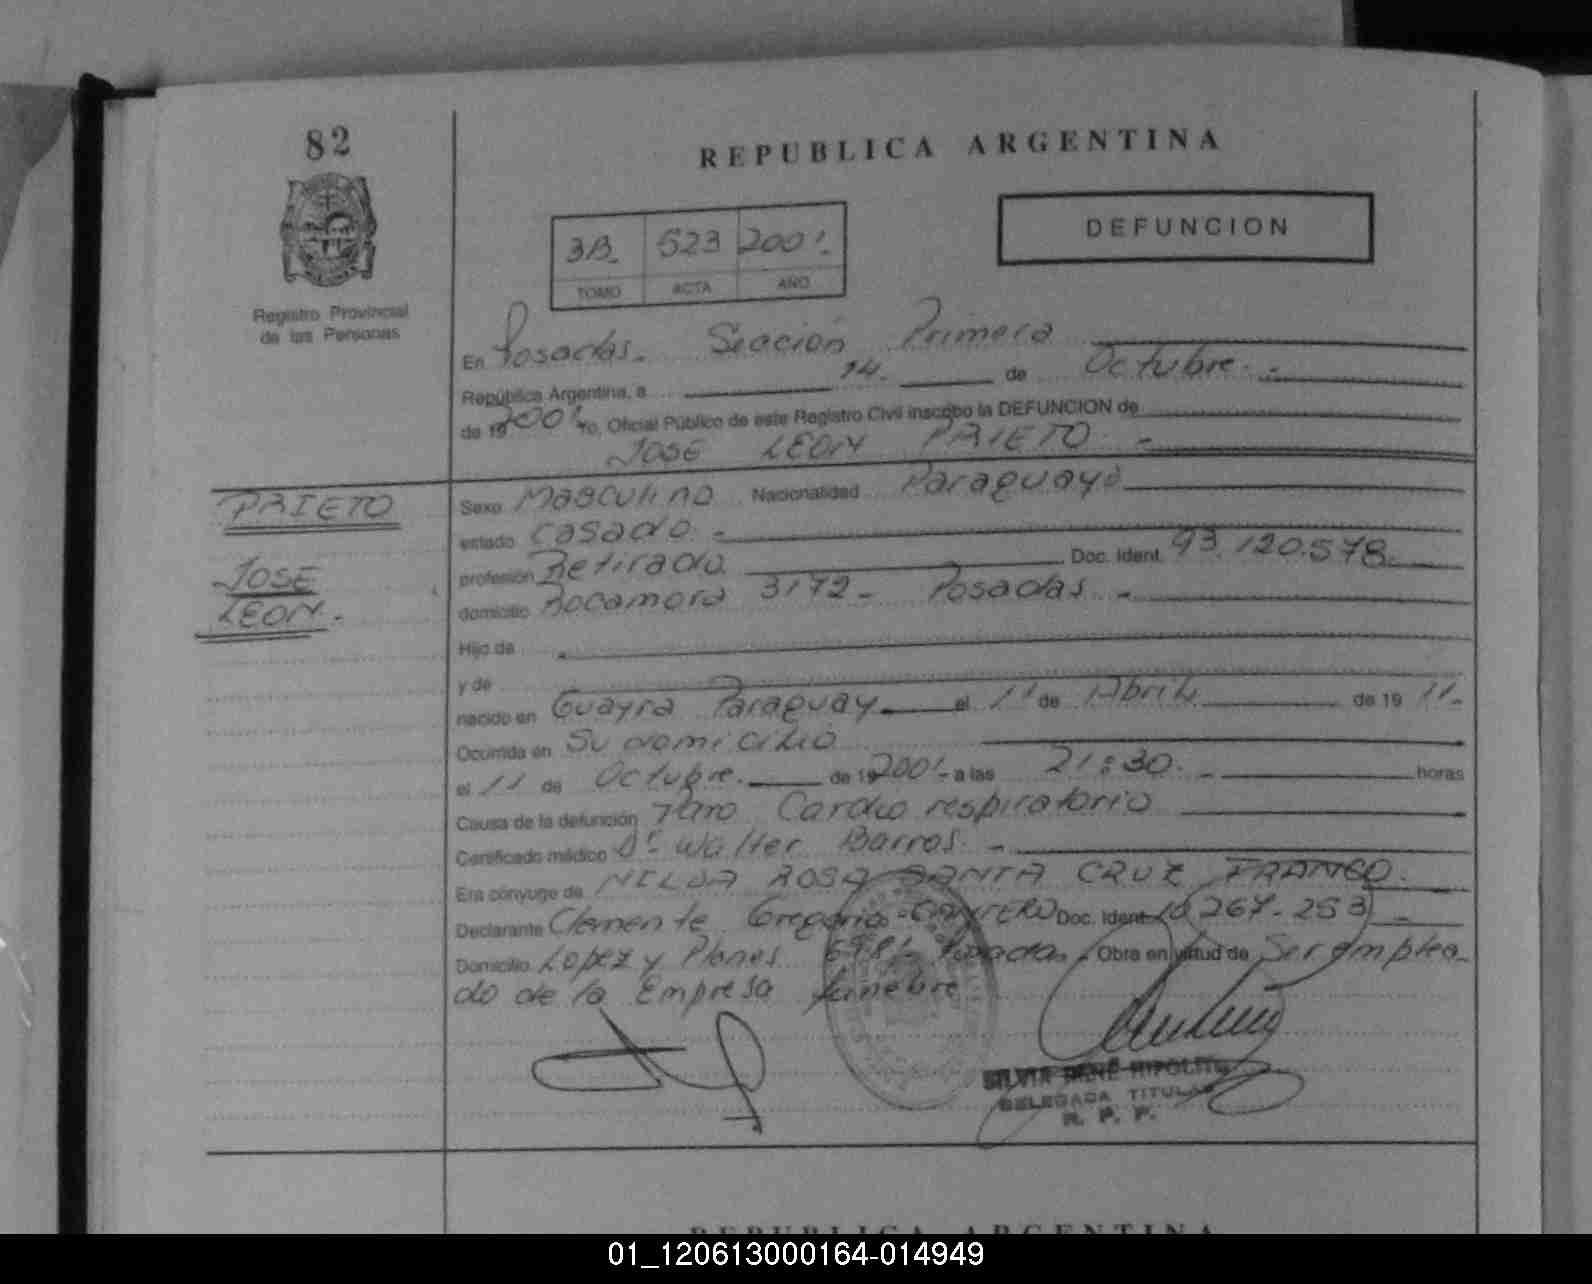 82
REPUBLICA ARGENTINA
DEFUNCION
3B. 523 2001.
TOMO ACTA AÑO
Registro Provincial
de las Personas
En Posadas. Sección Primera
República Argentina, a 14. de Octubre.-
de 19 2001. Yo, Oficial Público de este Registro Civil inscribo la DEFUNCION de
JOSE LEON PRIETO.-
PRIETO
JOSE
LEON.-
Sexo Masculino Nacionalidad Paraguayo
estado Casado.-
profesión Retirado Doc. Ident. 93.120.578.
domicilio Rocamora 3172- Posadas.-
Hijo de
y de
nacido en Guayra Paraguay el 11 de Abril de 19 11.-
Ocurrida en Su domicilio
el 11 de Octubre. de 19 2001.- a las 21:30.- horas
Causa de la defunción Paro Cardio respiratorio
Certificado médico Dr. Walter Barros.-
Era cónyuge de NILDA ROSA SANTA CRUZ FRANCO.
Declarante Clemente Gregorio Doc. Ident. 10.267.253.-
Domicilio Lopez y Planes Posadas. Obra en virtud de Ser emplea-
do de la Empresa funebre
SILVIA RENE HIPOLITO
DELEGADA TITULAR
R. P. P.
REPUBLICA ARGENTINA
01_120613000164-014949